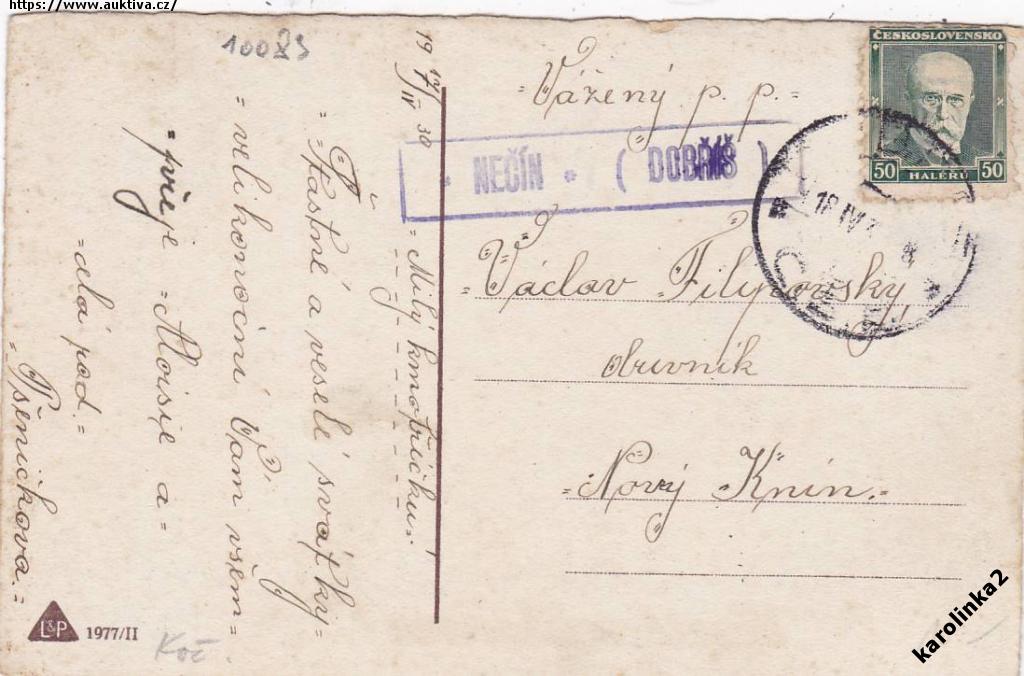 https://www.auktiva.cz/
100
19 17/IV 30
= Milý kmotříčku! =
Šťastné a veselé svátky =
= velikonoční Vám všem =
= přeje = Aloisie a =
= dlá pod. =
= Pšeničkova. =
L&P 1977/II
Koč.
Vážený p. p. =
• NEČÍN • ( DOBŘÍŠ )
ČESKOSLOVENSKO
50 HALÉŘŮ 50
18 IV
= Václav Filipovský,
obuvník
= Nový Knín. =
karolinka2